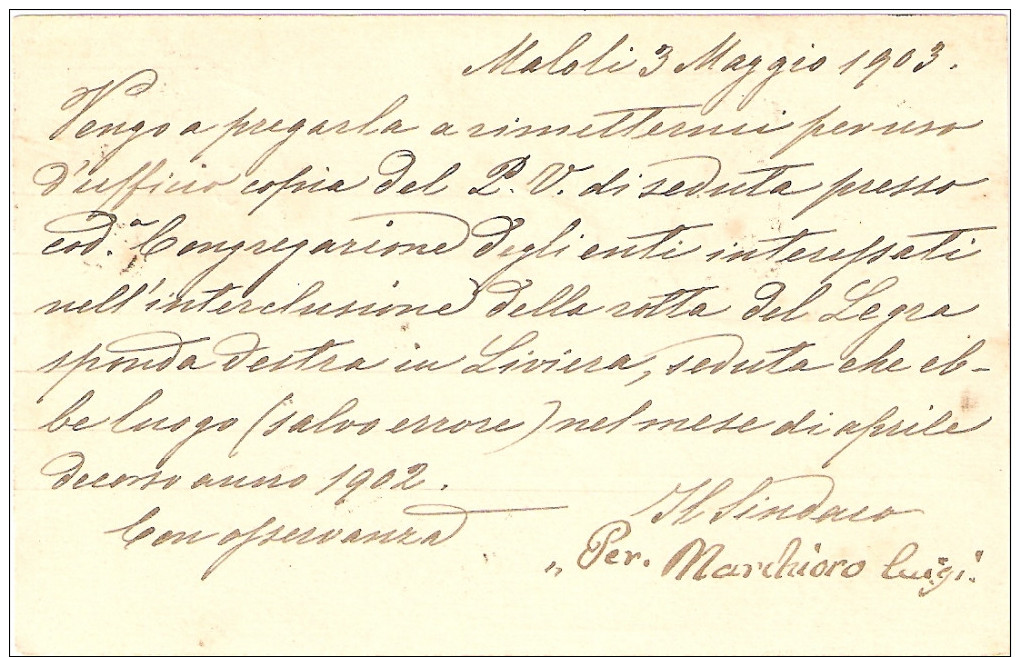 Maloli 3 Maggio 1903.
Vengo a pregarla a rimettermi per uso
d'ufficio copia del P. V. di seduta presso
cod.a Congregazione degli enti interessati
nell'interclusione della rotta del Legra
sponda destra in Liviera, seduta che eb-
be luogo (salvo errore) nel mese di aprile
decorso anno 1902.
Con osservanza
Il Sindaco
„ Per. Marchioro Luigi.